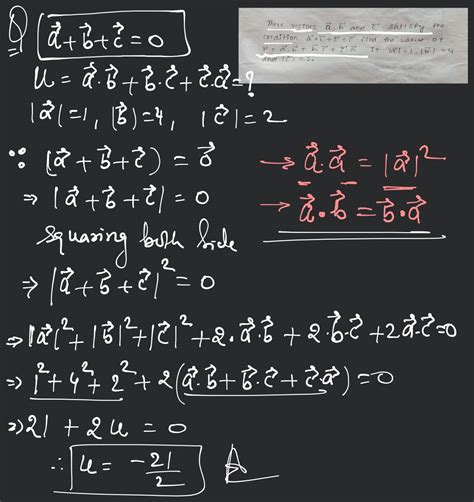 Q a⃗+b⃗+c⃗=0
Three vectors a⃗, b⃗ and c⃗ satisfy the
condition a⃗+b⃗+c⃗=0⃗. Find the value of
μ=a⃗.b⃗+b⃗.c⃗+c⃗.a⃗. If |a⃗|=1, |b⃗|=4
and |c⃗|=2.
u = a⃗.b⃗+b⃗.c⃗+c⃗.a⃗=?
|a⃗|=1, |b⃗|=4, |c⃗|=2
∵ (a⃗+b⃗+c⃗) = 0⃗
⇒ |a⃗+b⃗+c⃗| = 0
squaring both side
→ a⃗.a⃗ = |a⃗|²
→ a⃗.b⃗=b⃗.a⃗
⇒ |a⃗+b⃗+c⃗|²=0
⇒ |a⃗|²+|b⃗|²+|c⃗|²+2.a⃗.b⃗+2.b⃗.c⃗+2a⃗.c⃗=0
⇒ 1²+4²+2²+2(a⃗.b⃗+b⃗.c⃗+c⃗.a⃗)=0
⇒ 21+2u=0
∴ u=-21/2 A